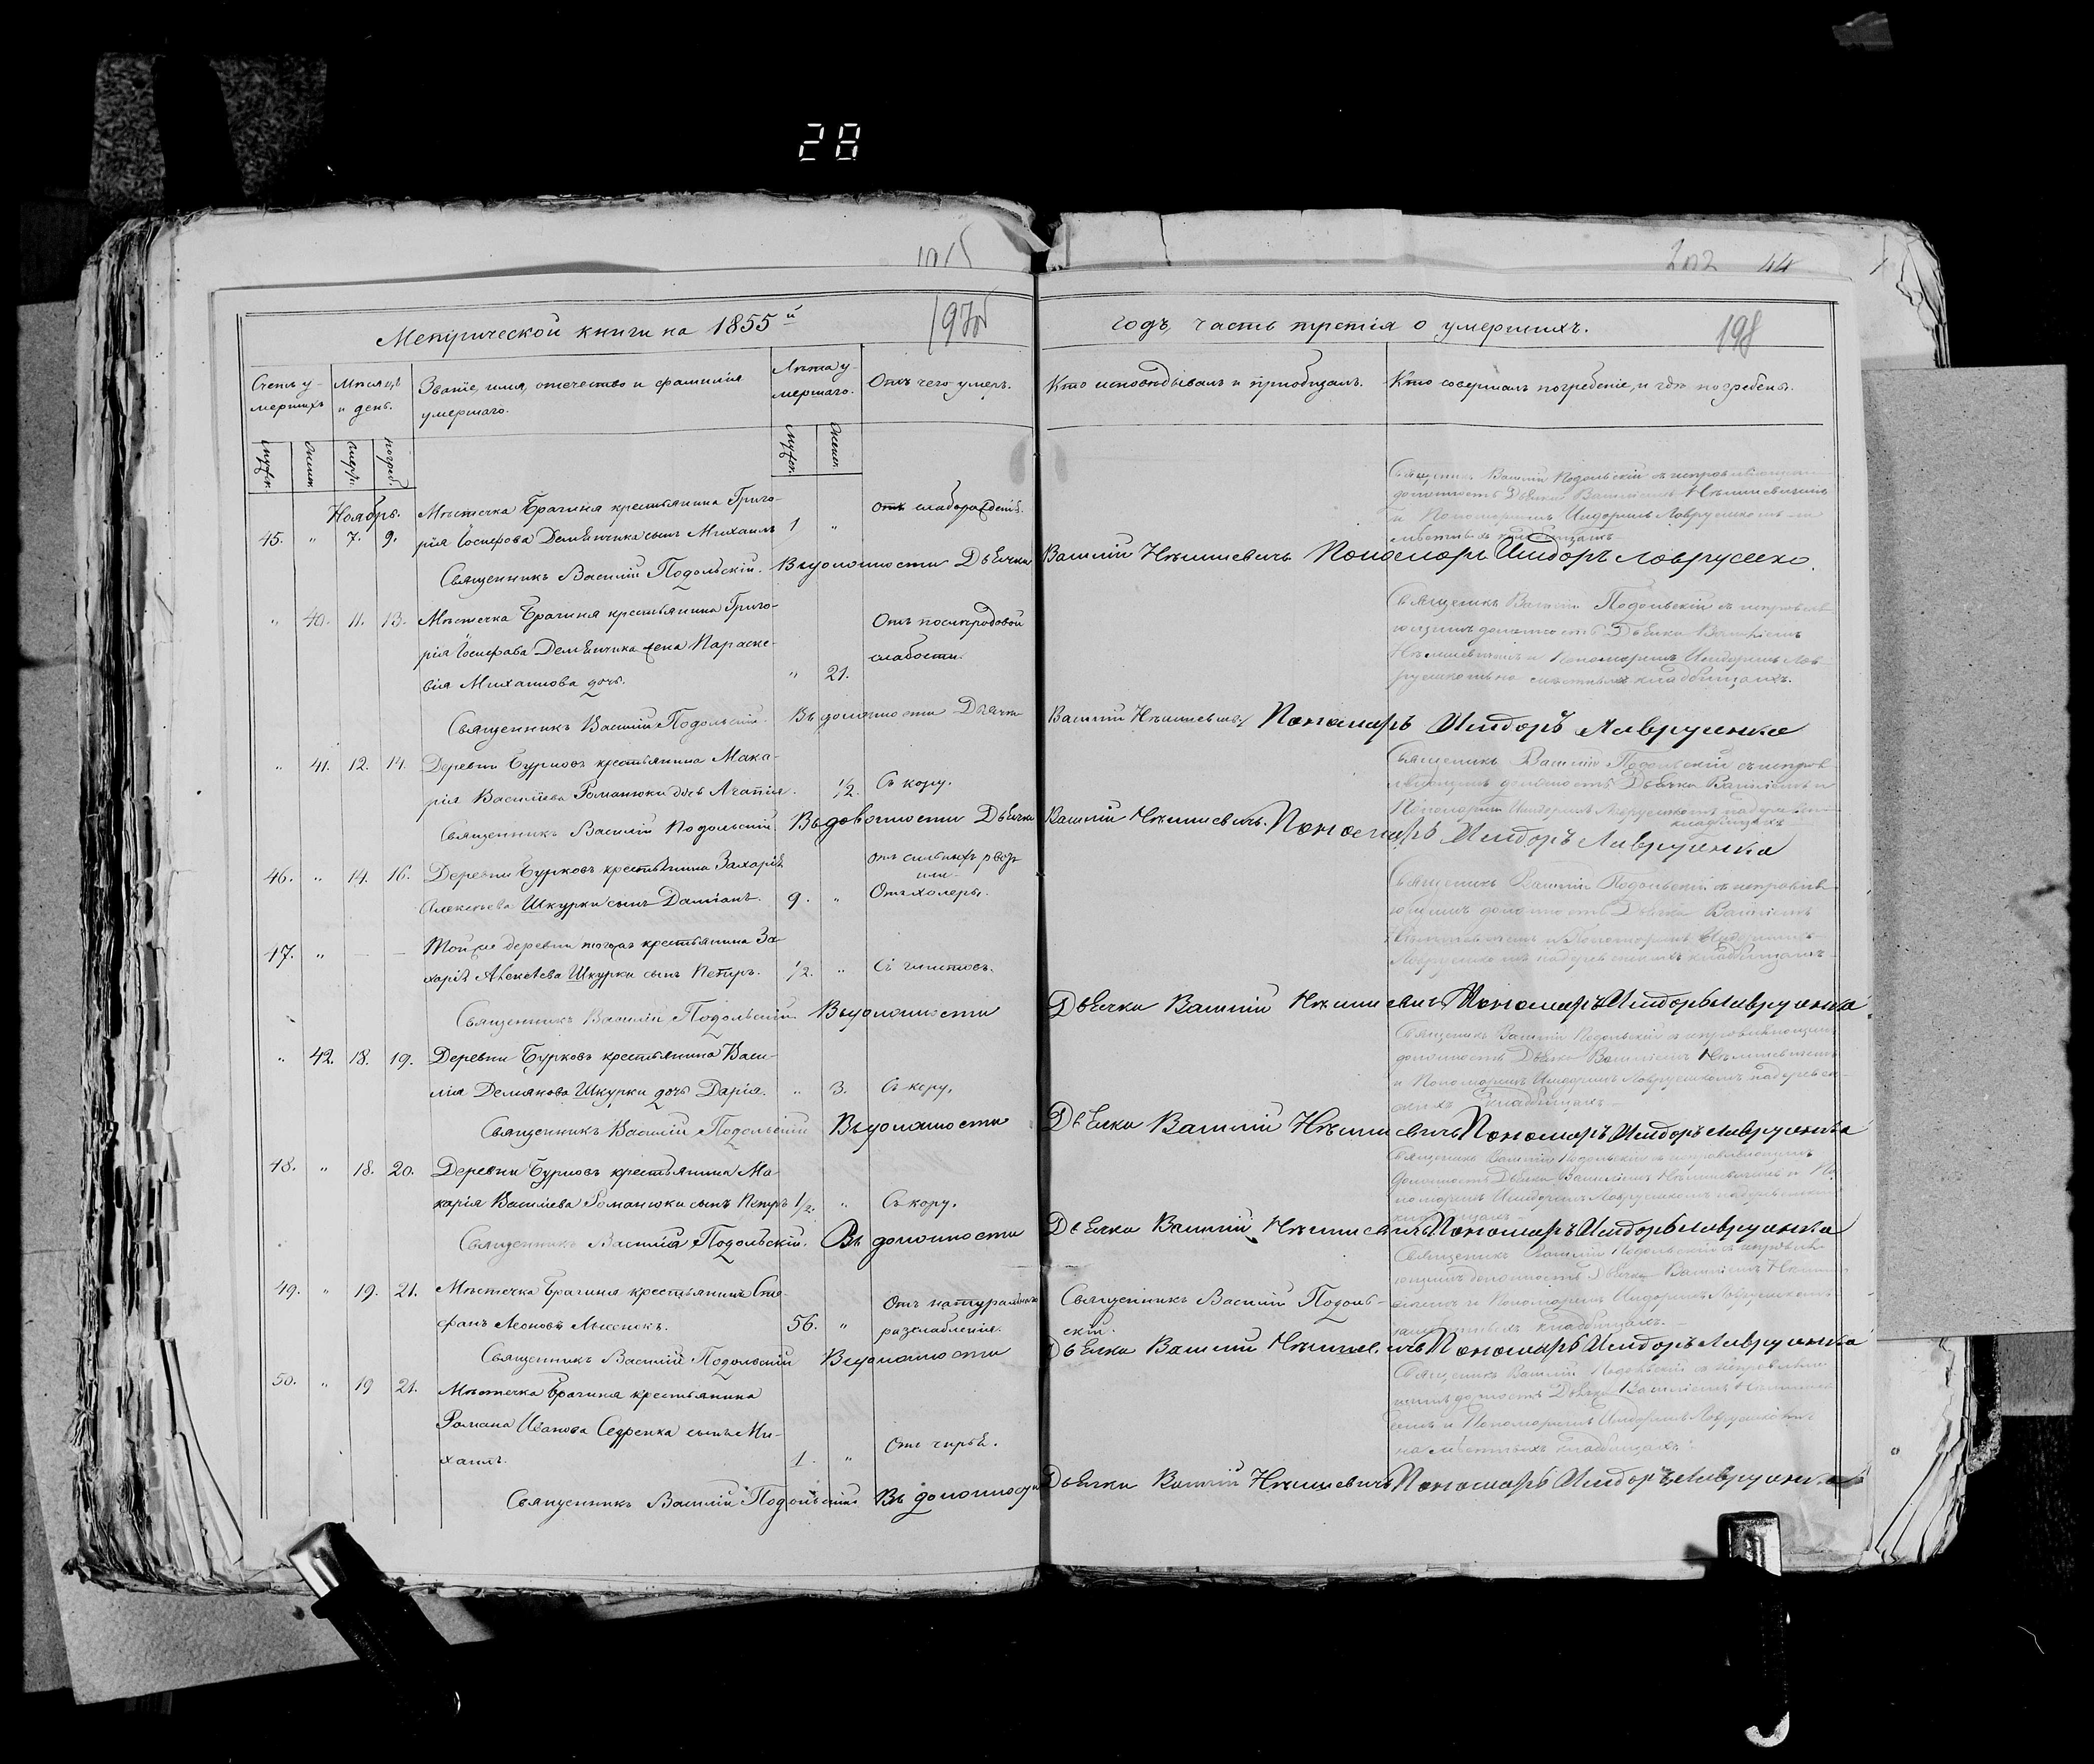 28
1975
202 44
Метрической книги на 1855й
годъ, часть третія о умершихъ.
198
Счетъ у-
мершихъ
Мѣсяцъ
и день.
Званіе, имя, отечество и фамилія
умершаго.
Лѣта у-
мершаго.
Отъ чего умеръ.
Кто исповѣдывалъ и пріобщалъ.
Кто совершалъ погребеніе, и гдѣ погребены.
мужск.
женск.
смерт.
погреб.
мужск.
женск.
Ноябрь.
45. " 7. 9.
Мѣстечка Брагиня крестьянина Григо-
рія Іосифова Демьянчика сынъ Михаилъ 1 "
отъ слаборожденія.
Священникъ Василій Подольскій съ исправляющимъ
должность Дьячка Василіемъ
и Пономаремъ Исидоромъ Лаврушкомъ на
мѣстныхъ кладбищахъ
Священникъ Василій Подольскій. Въ должности Дьячка Василій Пономарь Исидоръ Лаврушко.
" 40. 11. 13.
Мѣстечка Брагиня крестьянина Григо-
рія Іосифова Демьянчика жена Параске-
вія Михаилова дочь. " 21.
Отъ послѣродовой
слабости.
Священникъ Василій Подольскій съ исправля-
ющимъ должность Дьячка Василіемъ
и Пономаремъ Исидоромъ Лав-
рушкомъ на мѣстныхъ кладбищахъ.
Священникъ Василій Подольскій. Въ должности Дьячка Василій Пономарь Исидоръ Лаврушенко
" 41. 12. 14.
Деревни Бурковъ крестьянина Мака-
рія Василіева Романюки дочь Агапія. 1/2.
Съ кору.
Священникъ Василій Подольскій съ исправ-
ляющимъ должность Дьячка Василіемъ
Пономаремъ Исидоромъ Лаврушкомъ
кладбищахъ
Священникъ Василій Подольскій. Въ должности Дьячка Василій Пономарь Исидоръ Лаврушенко
46. " 14. 16.
Деревни Бурковъ крестьянина Захарія
Алексѣева Шкурки сынъ Даміанъ. 9. "
отъ сильныхъ рвотъ
или
Отъ холеры.
Священникъ Василій Подольскій съ исправля-
ющимъ должность Дьячка Василіемъ
и Пономаремъ Исидоромъ
Лаврушкомъ на деревенскихъ кладбищахъ
47. " — —
Той же деревни тогожъ крестьянина За-
харія Алексѣева Шкурки сынъ Петръ. 1/2. "
Съ глистовъ.
Священникъ Василій Подольскій Въ должности Дьячка Василій Пономарь Исидоръ Лаврушенко
" 42. 18. 19.
Деревни Бурковъ крестьянина Васи-
лія Демянова Шкурки дочь Дарія. " 3.
Съ кору.
Священникъ Василій Подольскій съ исправляющимъ
должность Дьячка Василіемъ
и Пономаремъ Исидоромъ Лаврушкомъ на деревен-
скихъ кладбищахъ
Священникъ Василій Подольскій Въ должности Дьячка Василій Пономарь Исидоръ Лаврушенко
48. " 18. 20.
Деревни Бурковъ крестьянина Ма-
карія Василіева Романюки сынъ Петръ 1/2. "
Съ кору.
Священникъ Василій Подольскій съ исправляющимъ
должность Дьячка Василіемъ и По-
номаремъ Исидоромъ Лаврушкомъ на деревенскихъ
кладбищахъ
Священникъ Василій Подольскій. Въ должности Дьячка Василій Пономарь Исидоръ Лаврушенко
49. " 19. 21.
Мѣстечка Брагиня крестьянинъ Сте-
фанъ Леоновъ 56. "
Отъ натуральнаго
разслабленія.
Священникъ Василій Подоль-
скій.
Священникъ Василій Подольскій съ исправля-
ющимъ должность Дьячка Василіемъ
и Пономаремъ Исидоромъ Лаврушкомъ
на мѣстныхъ кладбищахъ.
Священникъ Василій Подольскій Въ должности Дьячка Василій Пономарь Исидоръ Лаврушенко
50. " 19 21.
Мѣстечка Брагиня крестьянина
Романа Иванова сынъ Ми-
хаилъ. 1. "
Отъ чирья.
Священникъ Василій Подольскій съ исправляю-
щимъ должность Дьячка Василіемъ
и Пономаремъ Исидоромъ Лаврушкомъ
на мѣстныхъ кладбищахъ.
Священникъ Василій Подольскій Въ должности Дьячка Василій Пономарь Исидоръ Лаврушенко